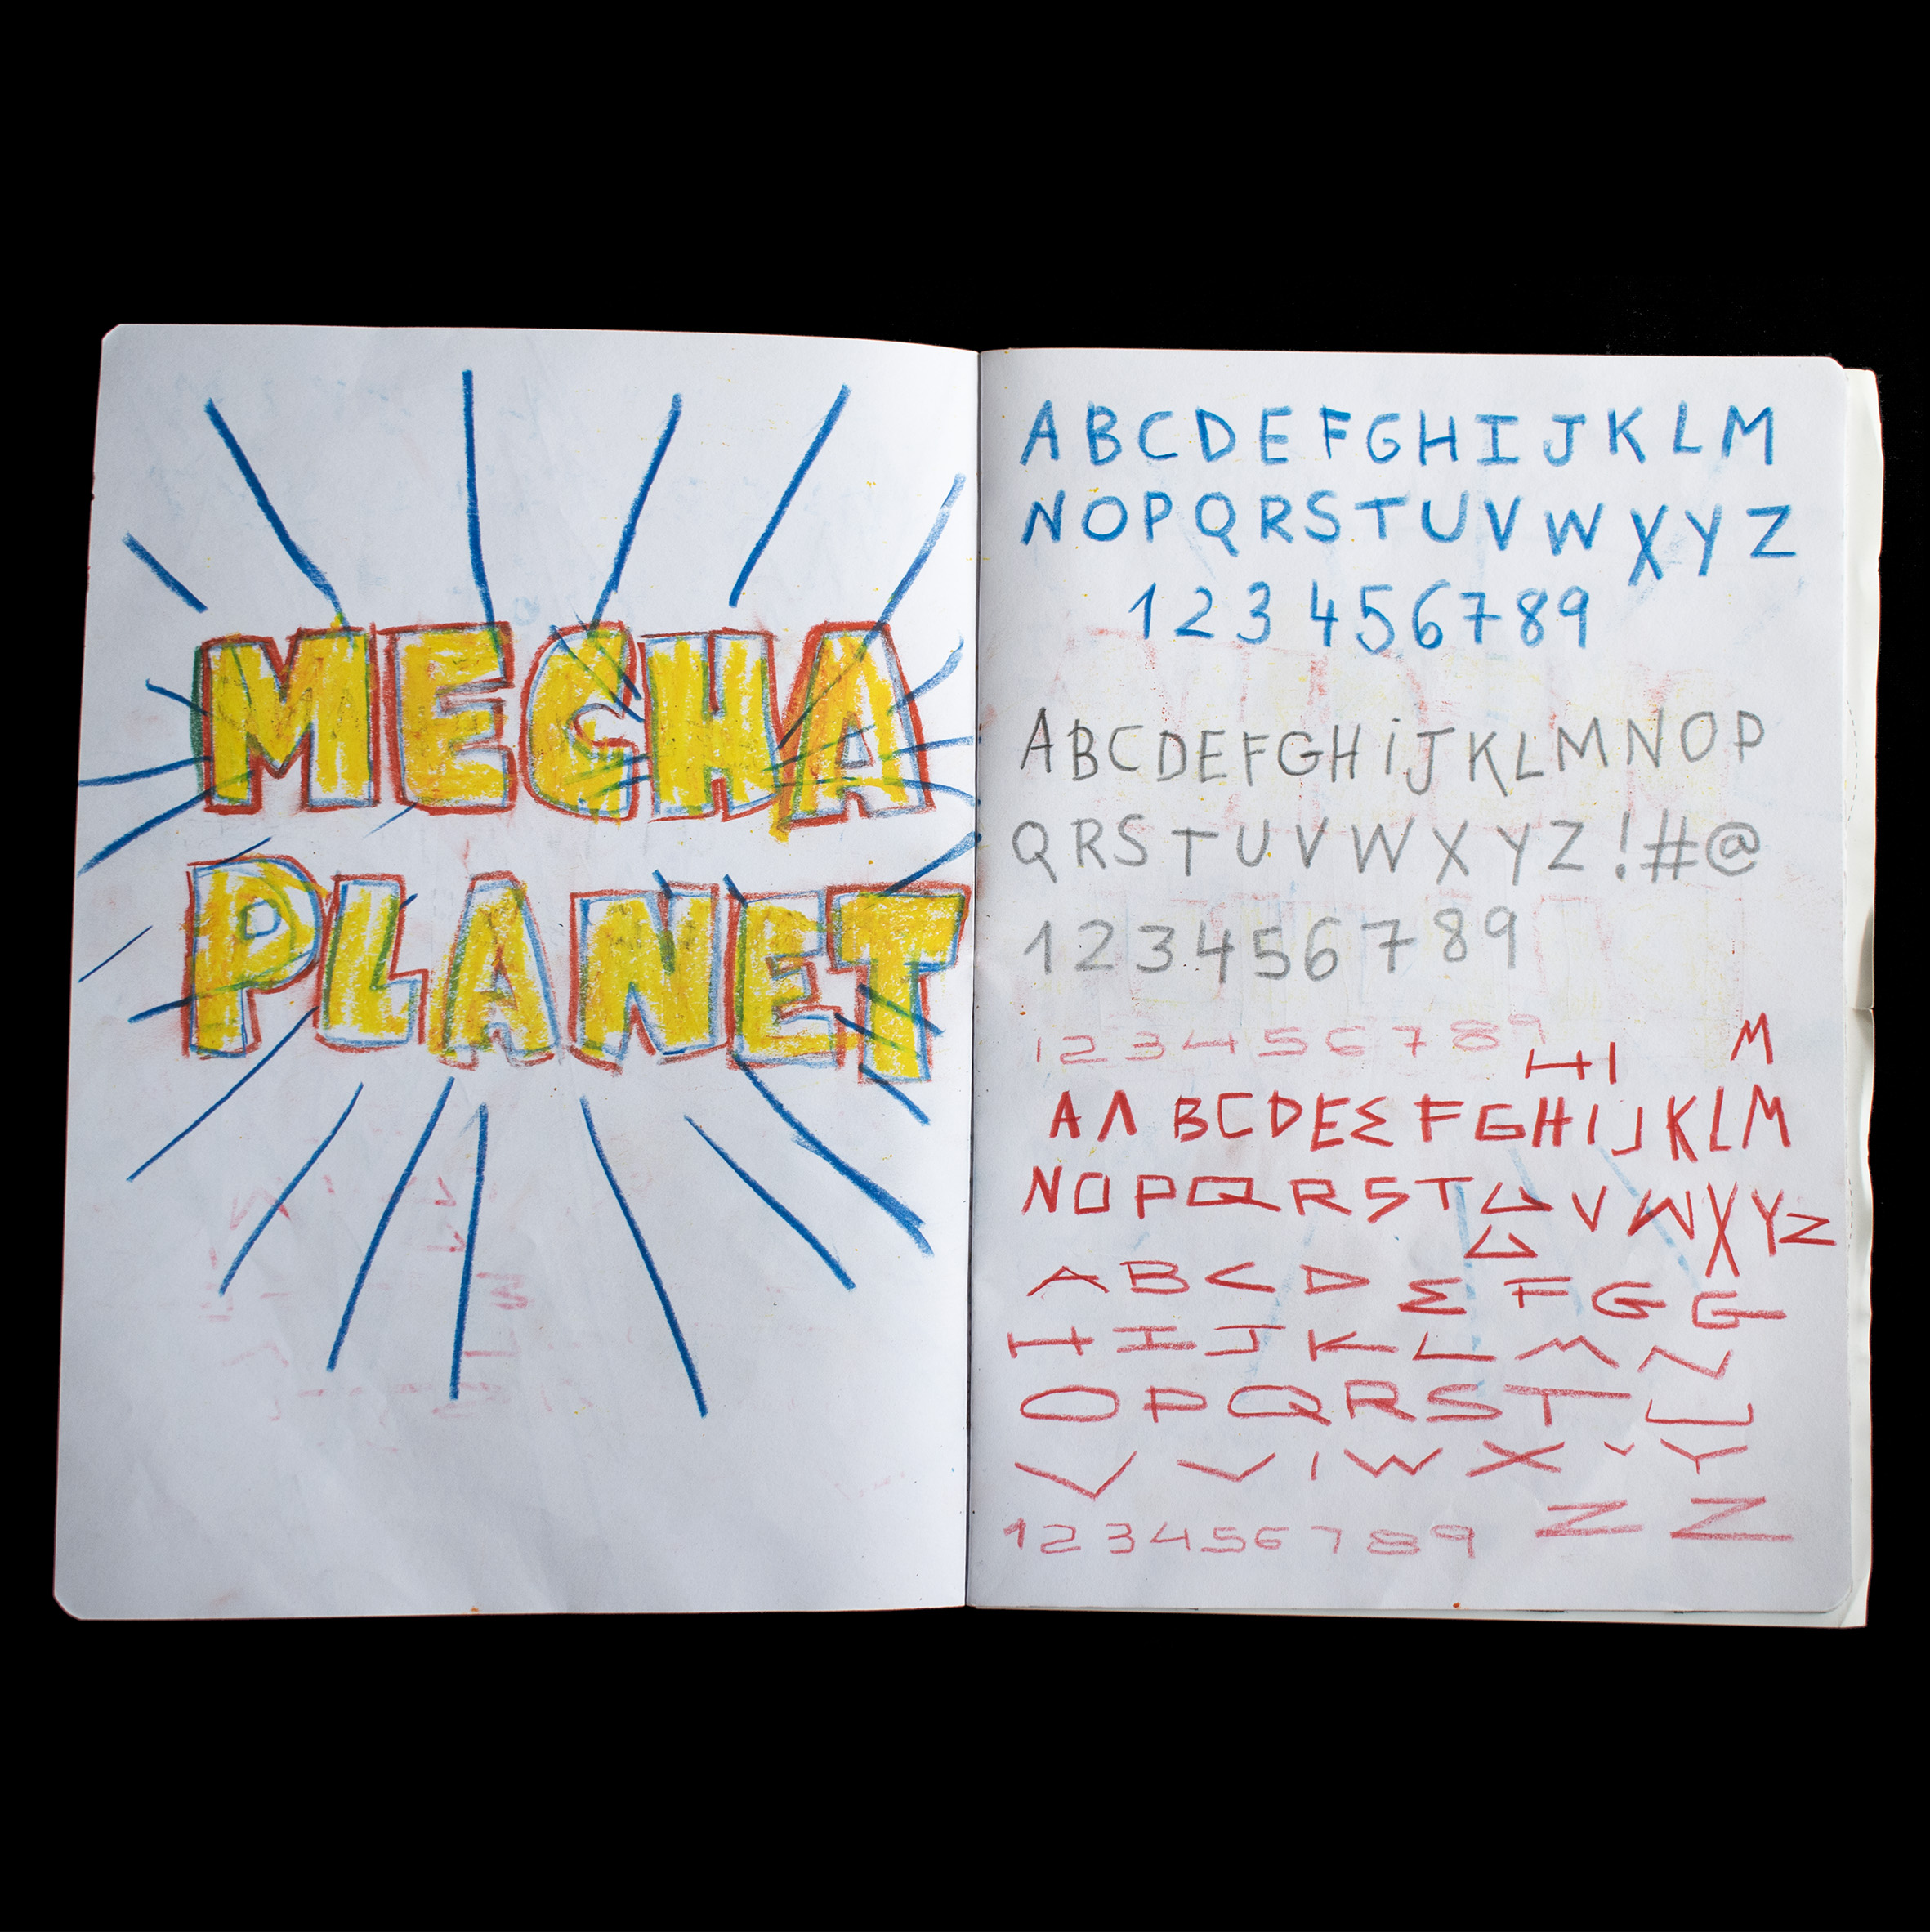 MECHA
PLANET
A B C D E F G H I J K L M
N O P Q R S T U V W X Y Z
1 2 3 4 5 6 7 8 9
A B C D E F G H i J K L M N O P
Q R S T U V W X Y Z ! # @
1 2 3 4 5 6 7 8 9
1 2 3 4 5 6 7 8 9
H I M
A Λ B C D E Σ F G H I J K L M
N O P Q R S T U V W X Y Z
U
A B C D Σ F G G
H I J K L M N
O P Q R S T U
V V I W X Y
Z Z
1 2 3 4 5 6 7 8 9